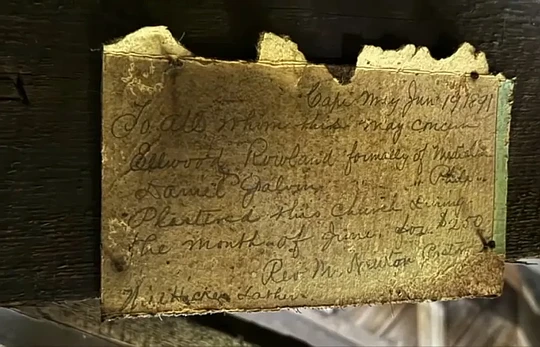 Cape May Jun. 19 1891
To All Whom this may concern
Ellwood Rowland formally of
Daniel Galvin " " Phila "
Plastered this church during
the month of June, for $250
Rev Mr. Newton Pastor
Hicken Lather